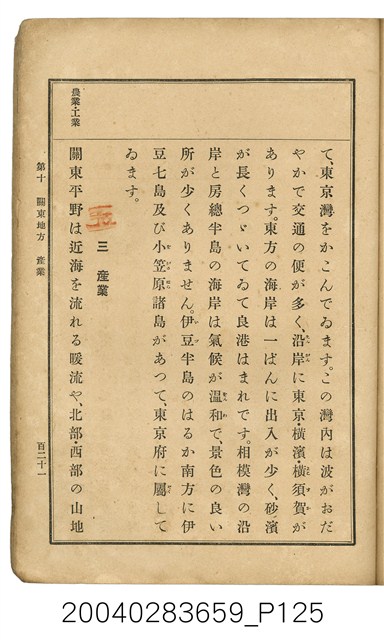 て、東京灣をかこんでゐます。この灣內は波がおだ
やかで交通の便が多く、沿岸に東京・橫濱・橫須賀が
あります。東方の海岸は一ぱんに出入が少く、砂濱
が長くつゞいてゐて良港はまれです。相模灣の沿
岸と房總半島の海岸は氣候が溫和で、景色の良い
所が少くありません。伊豆半島のはるか南方に伊
豆七島及び小笠原諸島があつて、東京府に屬して
ゐます。
三 產業
農業・工業
關東平野は近海を流れる暖流や、北部・西部の山地
第十 關東地方 產業
百二十一
20040283659_P125